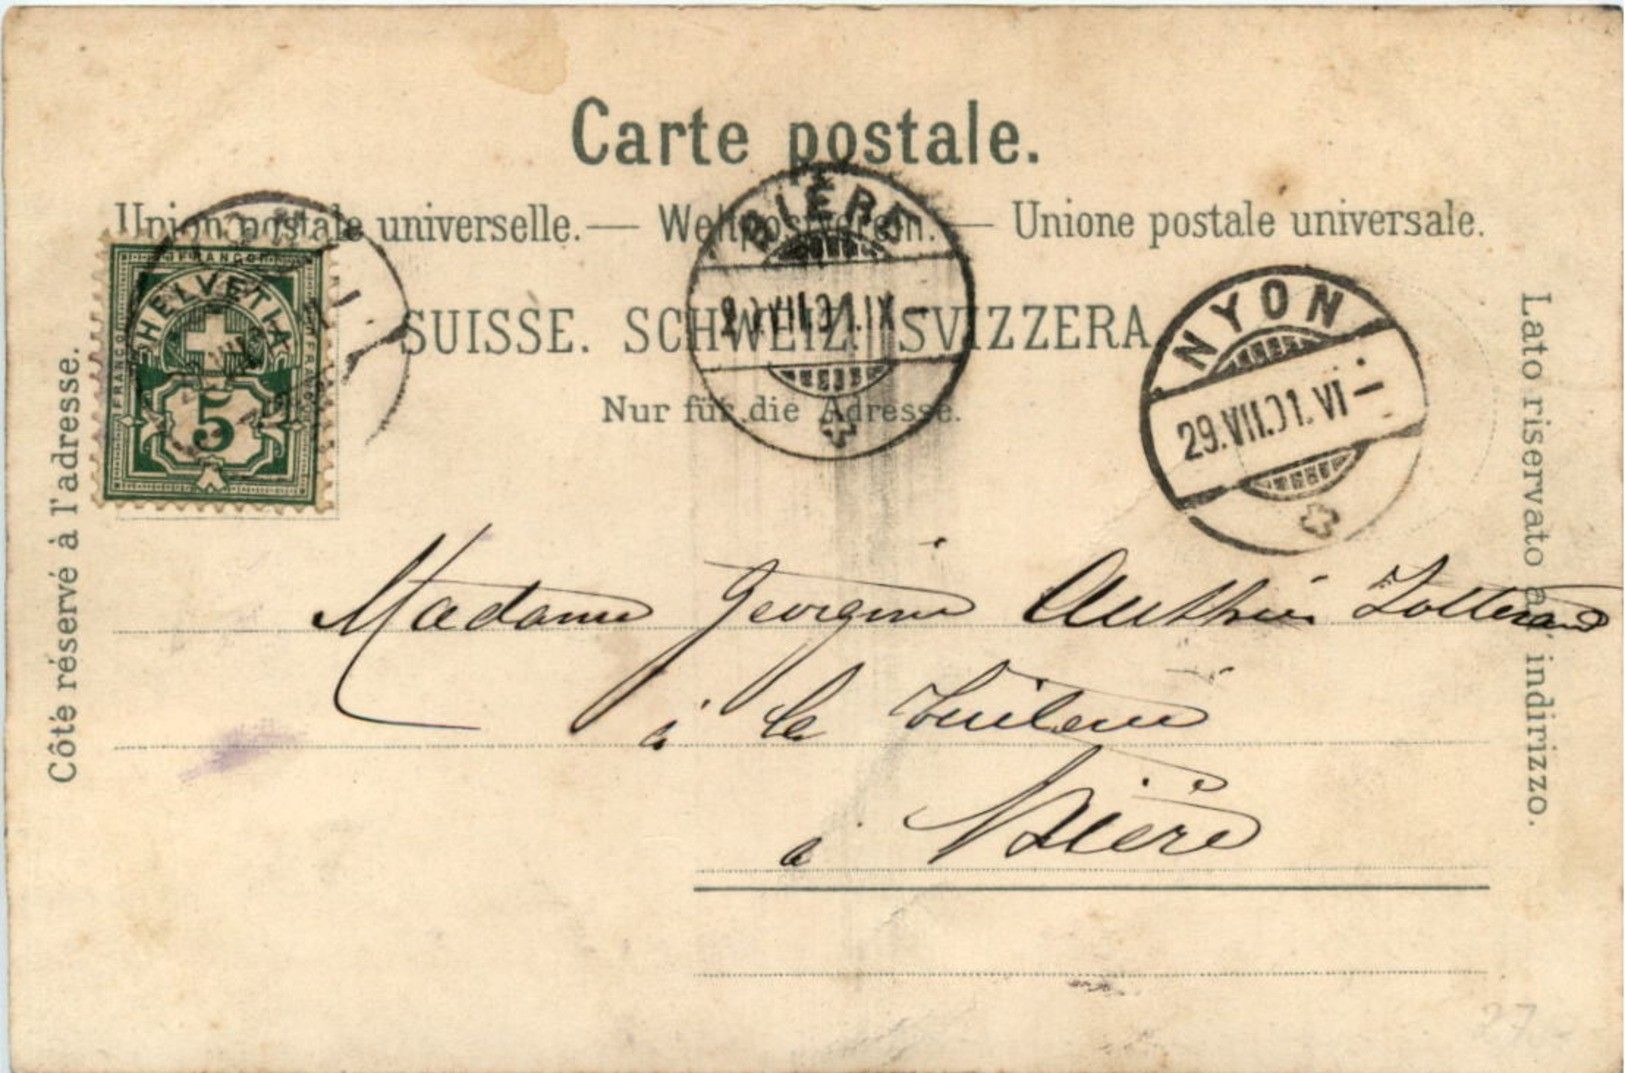 Carte postale.
Union postale universelle. — Weltpostverein. — Unione postale universale.
SUISSE. SCHWEIZ. SVIZZERA.
Nur für die Adresse.
Côté réservé à l'adresse.
Lato riservato all' indirizzo.
FRANCO
FRANCO
FRANCO
HELVETIA
5
BIÈRE
VII.01.IX
NYON
29.VII.01.VI—
Madame Georgine
à la
à Bière
27.-